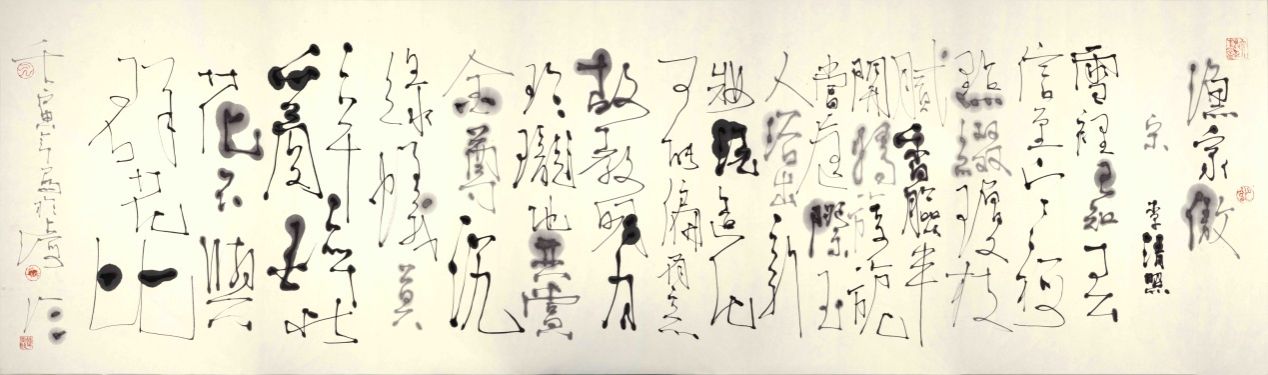 漁家傲
宋 李清照
雪裡已知春
信至寒梅
點綴瓊枝
膩香臉半
開嬌旖旎
當庭際玉
人浴出新
妝洗造化
可能偏有意
故教明月
玲瓏地共賞
金尊沉
綠蟻莫
此
花不與
群花比
壬寅年 於上海